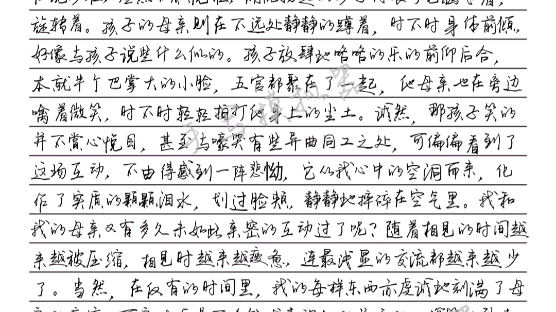 旋转着。孩子的母亲则在不远处静静的蹲着，时不时身体前倾，
好像与孩子说些什么似的。孩子放肆地咯咯的乐的前仰后合，
本就半个巴掌大的小脸，五官都聚在了一起，他母亲也在旁边
噙着微笑，时不时轻轻拍打他身上的尘土。诚然，那孩子笑的
并不赏心悦目，甚至与嚎哭有些异曲同工之处，可偏偏看到了
这场互动，不由得感到一阵悲恸，它从我心中的空洞而来，化
作了实质的颗颗泪水，划过脸颊，静静地摔碎在空气里。我和
我的母亲又有多久未如此亲密的互动过了呢？随着相见的时间越
来越被压缩，相见时越来越疲惫，连最浅显的交流都越来越少
了。当然，在仅有的时间里，我的每样东西亦虔诚地刻满了母